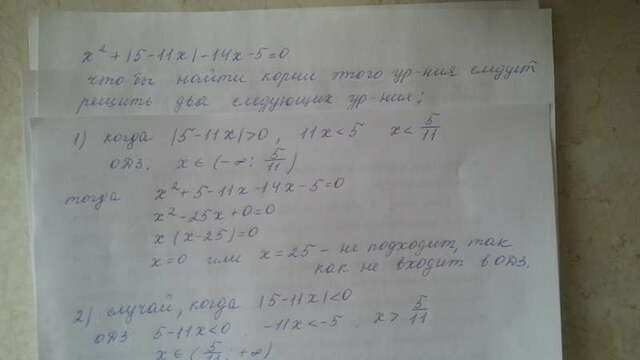 x² + |5-11x| -14x-5=0
что бы найти корни этого ур-ния следует
решить два следующих ур-ния:
1) когда |5-11x|>0, 11x<5 x<5/11
ОДЗ. x∈(-∞; 5/11)
тогда x²+5-11x-14x-5=0
x²-25x+0=0
x(x-25)=0
x=0 или x=25 - не подходит, так
как не входит в ОДЗ.
2) случай, когда |5-11x|<0
ОДЗ 5-11x<0. -11x<-5. x>5/11
x∈(5/11; +∞)